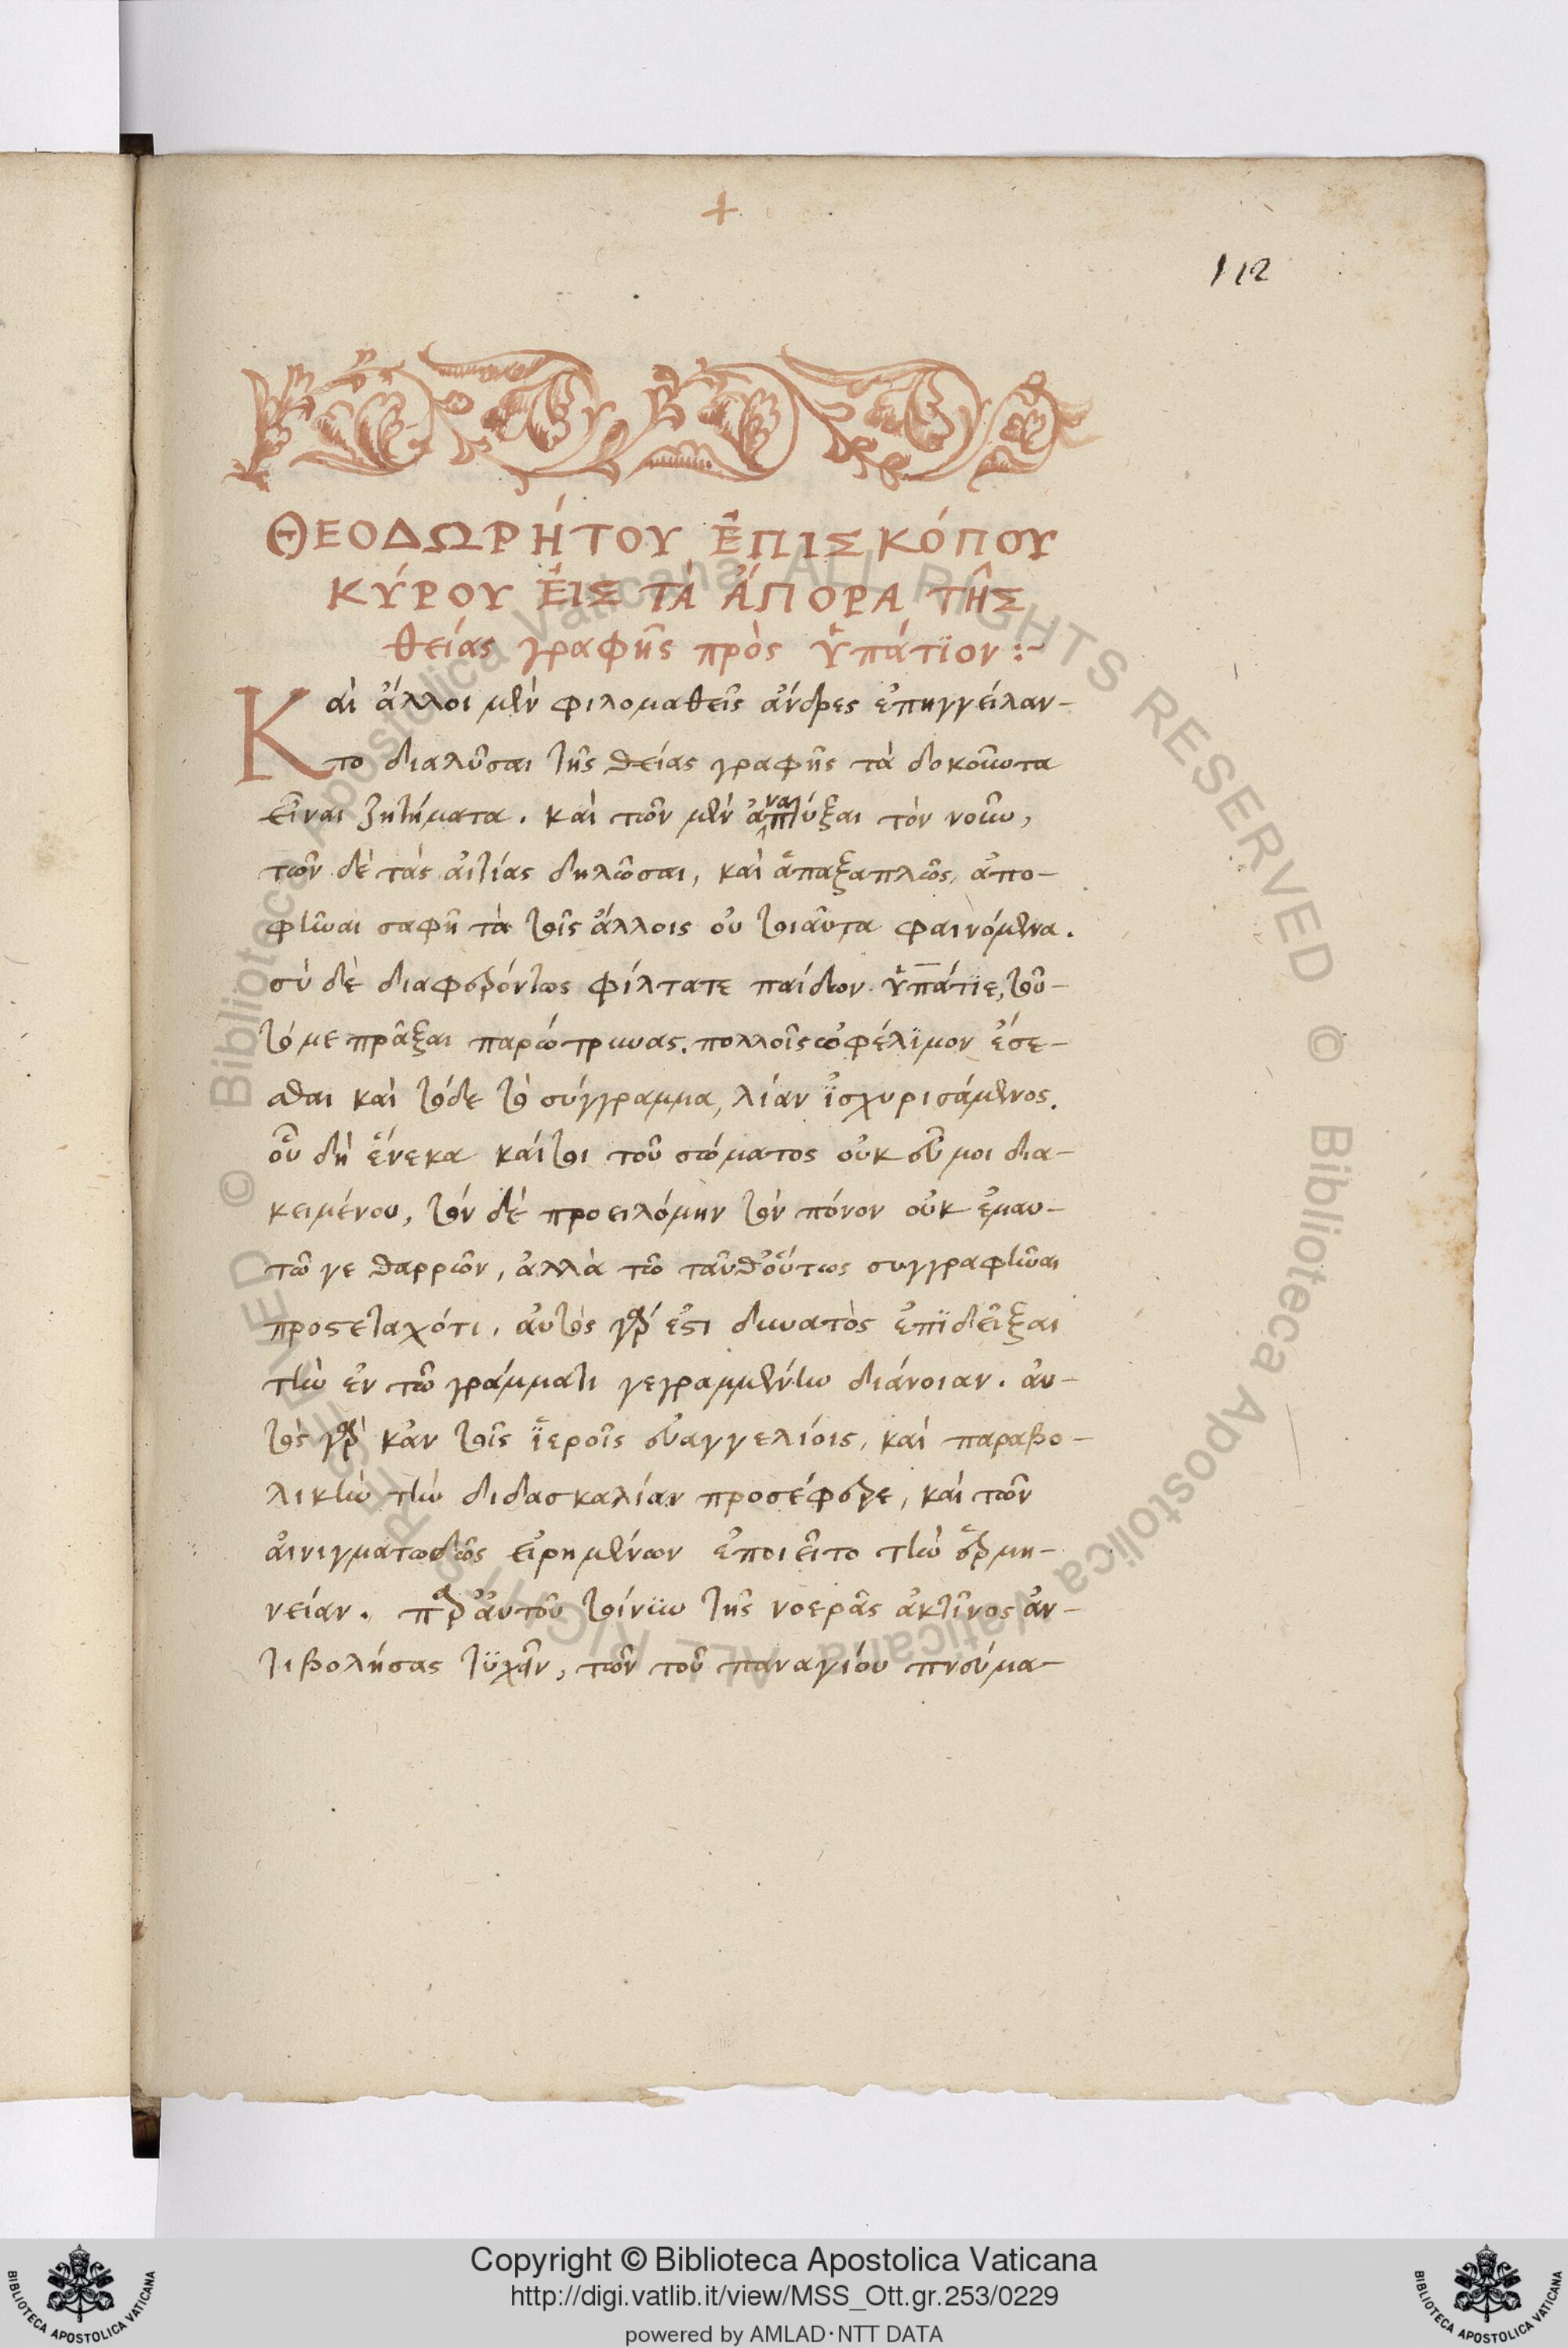 +
112
ΘΕΟΔΩΡΉΤΟΥ ἘΠΙΣΚΌΠΟΥ
ΚΎΡΟΥ ἘΙΣ ΤᾺ ἌΠΟΡΑ ΤΗ͂Σ
θείας γραφῆς πρὸς ὑπάτϊον :~
Καὶ ἄλλοι μὲν φιλομαθεῖς ἄνδρες ἐπηγγείλαν-
το διαλῦσαι τῆς θείας γραφῆς τὰ δοκοῦντα
εἶναι ζητήματα. καὶ τῶν μὲν ἀναπτύξαι τὸν νοῦν,
τῶν δὲ τὰς ἀιτίας δηλῶσαι, καὶ ἁπαξαπλῶς, ἀπο-
φῆναι σαφῆ τὰ τοῖς ἄλλοις οὐ τοιαῦτα φαινόμενα.
σὺ δὲ διαφερόντως φίλτατε παίδων ὑπάτϊε, τοῦ-
τό με πρᾶξαι παρώτρυνας. πολλοῖς ὠφέλϊμον ἔσε-
σθαι καὶ τόδε τὸ σύγγραμμα, λίαν ἰσχυρισάμενος.
οὗ δὴ ἕνεκα καίτοι τοῦ σώματος οὐκ εὖ μοι δια-
κειμένου, τόν δὲ προειλόμην τὸν πόνον οὐκ ἐμαυ-
τῶ γε θαρρῶν, ἀλλὰ τῶ ταῦθ' οὕτως συγγραφῆναι
προστεταχότι. ἀυτὸς γάρ ἐστι δυνατὸς ἐπϊδεῖξαι
τὴν ἐν τῶ γράμματι γεγραμμένην διάνοιαν. ἀυ-
τὸς γὰρ κἀν τοῖς ἱεροῖς εὐαγγελίοις, καὶ παραβο-
λικὴν τὴν διδασκαλίαν προσέφερε, καὶ τῶν
ἀινιγματωδῶς εἰρημένων ἐποιεῖτο τὴν ἑρμη-
νείαν. παρ' ἀυτοῦ τοίνυν τῆς νοερᾶς ἀκτῖνος ἀν-
τιβολήσας τϋχεῖν, τῶν τοῦ παναγίου πνεύμα-
Copyright © Biblioteca Apostolica Vaticana
http://digi.vatlib.it/view/MSS_Ott.gr.253/0229
powered by AMLAD·NTT DATA
BIBLIOTECA APOSTOLICA VATICANA
BIBLIOTECA APOSTOLICA VATICANA
© Biblioteca Apostolica Vaticana ALL RIGHTS RESERVED © Biblioteca Apostolica Vaticana ALL RIGHTS RESERVED